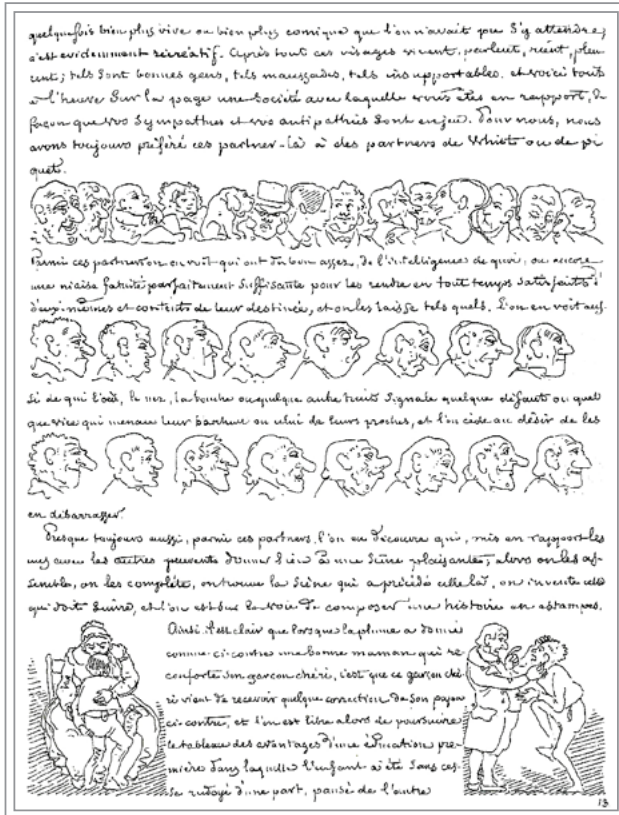 quelquefois bien plus vive ou bien plus comique que l'on n'avait pu s'y attendre;
c'est évidemment récréatif. Après tout ces visages vivent, parlent, rient, pleu-
rent; tels sont bonnes gens, tels maussades, tels insupportables. et voici tout
à l'heure sur la page une société avec laquelle vous êtes en rapport, de
façon que vos sympathies et vos antipathies sont en jeu. Pour nous, nous
avons toujours préféré ces partner-là à des partners de Whist ou de pi
quet.
Parmi ces partners on en voit qui ont du bon assez, de l'intelligence de quoi, ou encore
une niaise fatuité parfaitement suffisante pour les rendre en tout temps satisfaits d'
d'eux-mêmes et contents de leur destinée, et on les laisse tels quels. L'on en voit aus-
si de qui l'œil, le nez, la bouche ou quelque autre trait signale quelque défaut ou quel
que vice qui menace leur bonheur ou celui de leurs proches, et l'on cède au désir de les
en débarrasser.
Presque toujours aussi, parmi ces partners, l'on en découvre qui, mis en rapport les
uns avec les autres peuvents donner lieu à une scène plaisante; alors on les as-
semble, on les complète, on trouve la scène qui a précédé celle là, on invente celle
qui doit suivre, et l'on est sur la voie de composer une histoire en estampes.
Ainsi il est clair que lorsque la plume a donné
comme ci-contre une bonne maman qui ré
conforte son garçon chéri, c'est que ce garçon ché
ri vient de recevoir quelque correction de son papa
ci-contre, et l'on est libre alors de poursuivre
le tableau des avantages d'une éducation pre-
mière dans laquelle l'enfant a été sans ces-
se rudoyé d'une part, pansé de l'autre
13